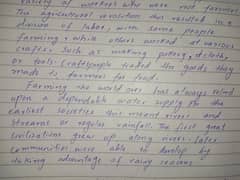 variety of workers who were not farmers
The agricultural revolution thus resulted in a
division of labor, with some people
farming, while others worked at various
crafts, such as making pottery, clothes
or tools. Craftspeople traded the goods they
made to farmers for food.
Farming the world over has always relied
upon a dependable water supply. For the
earliest societies this meant rivers and
streams or regular rainfall. The first great
civilizations grew up along rivers. Later
communities were able to develop by
taking advantage of rainy seasons